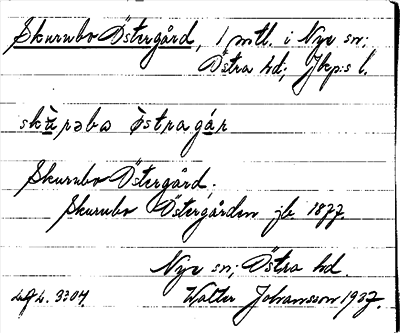 Skurubo Östergård, 1 mtl. i Nye sn;
Östra hd; Jkp:s l.
Skurubo Östergård;
Skurubo Östergården jb 1877.
Nye sn; Östra hd
Walter Johansson 1937.